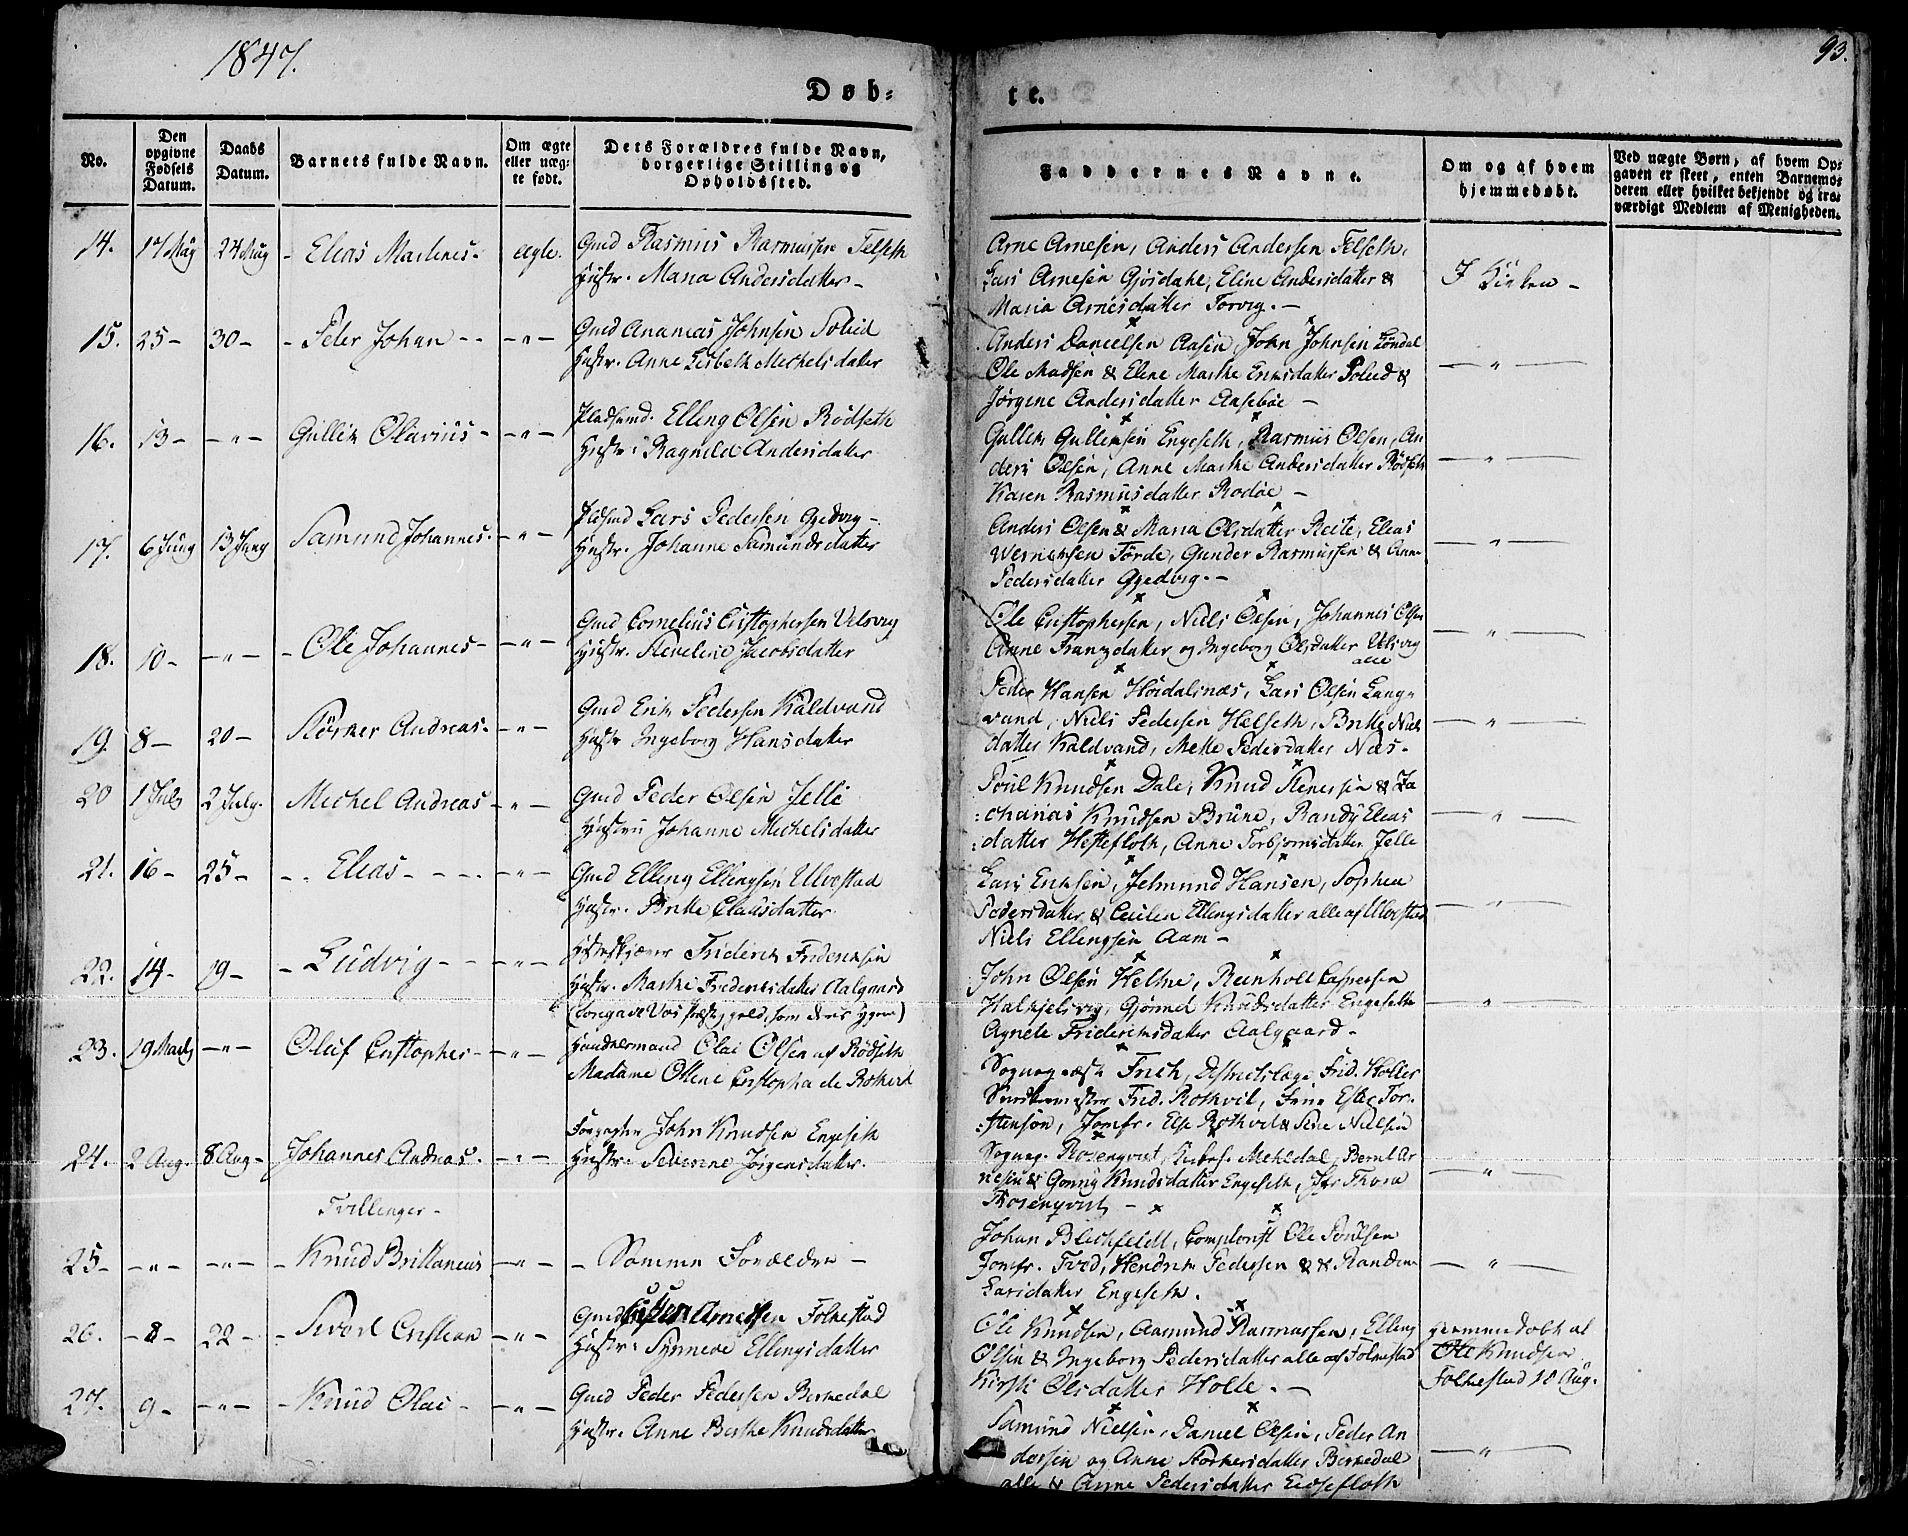 1847.
93.
Døb-
te.
No.
Den opgivne Fødsels Datum.
Daabs Datum.
Barnets fulde Navn.
Om ægte eller uægte født.
Dets Forældres fulde Navn, borgerlige Stilling og Opholdssted.
Faddernes Navne.
Om og af hvem hjemmedøbt.
Ved uægte Børn, af hvem Opgaven er skeet, enten Barnemoderen eller hvilket bekjendt og troværdigt Medlem af Menigheden.
14. 17 May 24 May - Elias Martines - ægte. Gmd Rasmus Rasmussen Felseth
Hustr. Maria Andersdatter -
Arne Arnesen, Anders Andersen Felseth,
Lars Arnesen Gjøsdahl, Eline Andersdatter &
Maria Arnesdatter Torvig. -
I Kirken -
15. 25 - 30 - - Peder Johan - - - " - Gmd Ananias Johnsen
Hustr. Anne Lisbeth Michelsdatter
Anders Danielsen Aasen, John Johnsen Løndal
Ole Madsen & Eline Marthe Eriksdatter &
Jørgine Andersdatter Aasebøe -
- " -
16. 13 - - " - Gullik Olavius - - " - Pladsmd. Elling Olsen Rødseth
Hustr: Ragnild Andersdatter
Gullik Gulliksen Engeseth, Rasmus Olsen, An
ders Olsen, Anne Marthe Andersdatter Rødseth
Karen Rasmusdatter -
- " -
17. 6 Juny 13 Juny Samund Johannes - - " - Pladsmd Lars Pedersen Gjedvig -
Hustr. Johanne Samundsdatter
Anders Olsen & Maria Olsdatter Reite, Elias
Førde, Gunder Rasmussen & Anne
Pedersdatter Gjedvig. -
- " -
18. 10 - - " - - Ole Johannes - - " - Gmd Cornelius Cristophersen Velsvig
Hustr. Jacobsdatter
Ole Cristophersen, Niels Olsen, Johannes Olsen
Anne Franzdatter og Ingeborg Olsdatter Velsvig
alle
- " -
19. 8 - 20 - Størker Andreas - - " - Gmd Erik Pedersen Kaldvand
Hustr Ingeborg Hansdatter
Peder Hansen Høidalsnæs, Lars Olsen Lang-
vand, Niels Pedersen Helseth, Britte Niels
datter Kaldvand, Mette Pedersdatter Næs -
- " -
20 1 July 2 July. Michel Andreas - " - Gmd Peder Olsen Jelle
Hustru Johanne Michelsdatter
Poul Knudsen Dale, Knud Stenersen & Za
charias Knudsen Brune, Randy Elias
datter Hestefloth, Anne Torbjørnsdatter Jelle
- " -
21. 16 - 25 - - - Elias - - - - " - Gmd Elling Ellingsen Ulvestad
Hustr. Britte Clausdatter.
Lars Eriksen, Jelmund Hansen, Sophia
Pedersdatter & Cicilia Ellingsdatter alle af Ulvestad
Niels Ellingsen Aam -
- " -
22. 14 - 19 - - Ludvig - - - " - Friderik Frideriksen
Hustr. Marthe Frideriksdatter Aalgaard
John Olsen Heltne, Reinholt Caspersen
Halkjelsvig, Gjønned Knudsdatter Engeseth
Agnete Frideriksdatter Aalgaard -
- " -
23. 19 Marts - " - Oluf Cristopher - - " - Handelsmand Olai Olsen af Rødseth
Madame Oline Cristopha de Rothvit
Sogneprest Frich, Districtslæge Frid. Holter
Frid. Rothvit, Else Tor-
stensøn, Jomfr. Else Rothvit & Sine Nielsen
24. 2 Aug. 8 Aug - Johannes Andreas - - " - John Knudsen Engeseth
Hustr. Severine Jørgensdatter.
Rosenqvist, Mehldal, Bernt Ar
nesen & Gonny Knudsdatter Engeseth, Jfr Thora
Rosenqvist -
- " -
Tvillinger -
25 - - " - - " - - Knud Brittanius - " - - Samme Forældre -
Johan Blechfeldt, Ole Poulsen
Jomfr. Tvod, Hendrik Pedersen & Randine
Larsdatter Engeseth.
- " -
26. - 8 - 22 - - Sivert Cristian - " - Gmd Arnesen Folkestad
Hustr: Synneve Ellingsdatter
Ole Knudsen, Aamund Rasmussen, Elling
Olsen & Ingeborg Pedersdatter alle af Folkestad
Kirsti Olsdatter Holte. -
Hjemmedøbt af
Ole Knudsen
Folkestad 10 Aug.
27. 9 - - " - - Knud Olai - - " - Gmd Peder Pedersen Berkedal
Hustr. Anne Berthe Knudsdatter
Samund Nielsen, Daniel Olsen, Peder An
dersen og Anne Størkersdatter Berkedal
alle & Anne Pedersdatter Eidsefloth
- " -